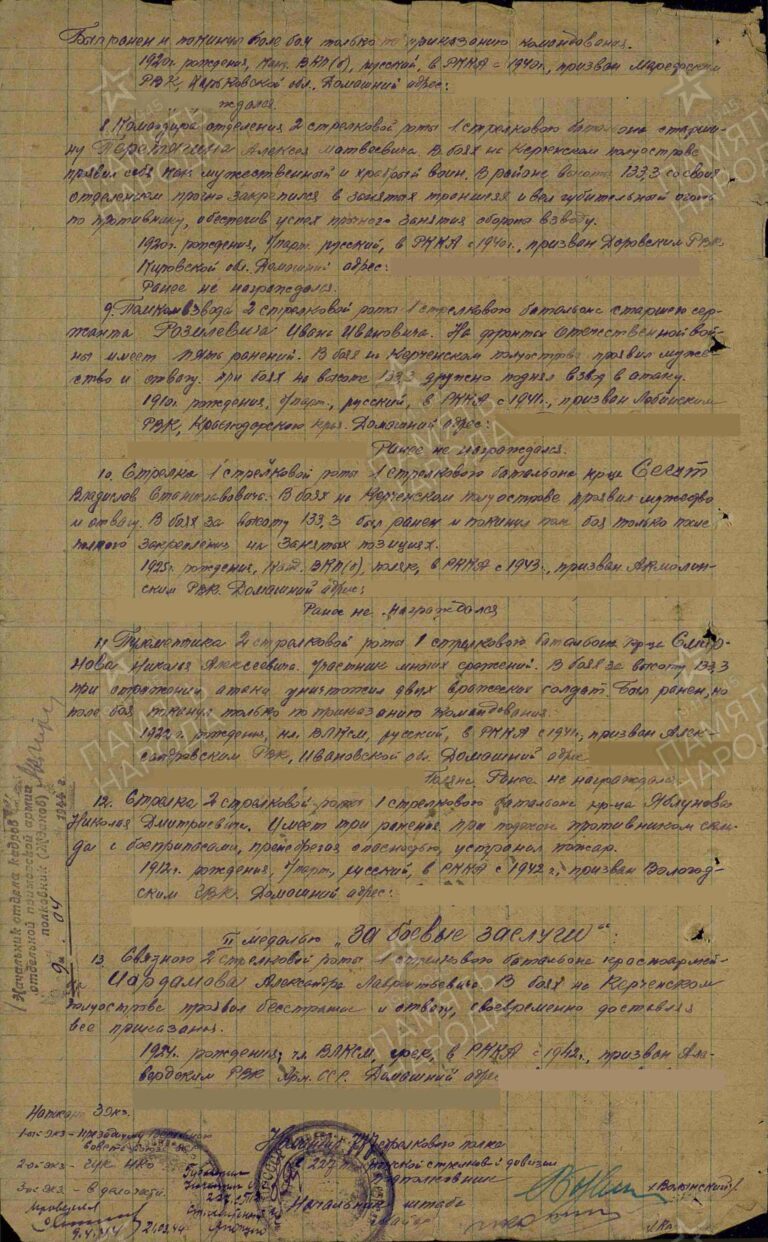 Был ранен и покинул поле боя только по приказанию командования.
1920г. рождения, канд. ВКП(б), русский, в РККА с 1940г., призван
РВК, Харьковской обл. Домашний адрес:
ждался.
8. Командира отделения 2 стрелковой роты 1 стрелкового батальона старши-
ну Алексея Матвеевича. В боях на Керченском полуострове
проявил себя как мужественный и храбрый воин. В районе высоты 133,3 со своим
отделением прочно закрепился в занятых траншеях и вел губительный огонь
по противнику, обеспечив успех прочного занятия обороны взводу.
1920г. рождения, б/парт. русский, в РККА с 1940г., призван Даровским РВК
Кировской обл. Домашний адрес:
Ранее не награждался.
9. Помкомвзвода 2 стрелковой роты 1 стрелкового батальона старшего сер-
жанта Розилевича Ивана Ивановича. На фронтах отечественной вой-
ны имеет пять ранений. В боях на Керченском полуострове проявил муже-
ство и отвагу. При боях на высоте 133,3 дружно поднял взвод в атаку.
1910г. рождения, б/парт., русский, в РККА с 1941г., призван Лабинским
РВК, Краснодарского края. Домашний адрес:
Ранее не награждался.
10. Стрелка 1 стрелковой роты 1 стрелкового батальона кр-ца Сегат
Владислав Станиславовича. В боях на Керченском полуострове проявил мужество
и отвагу. В боях за высоту 133,3 был ранен и покинул поле боя только после
полного закрепления на занятых позициях.
1925г. рождения, канд. ВКП(б), поляк, в РККА с 1943г., призван Акмолин-
ским РВК. Домашний адрес:
Ранее не награждался
11. 2 стрелковой роты 1 стрелкового батальона кр-ца Смир-
нова Николая Алексеевича. Участник многих сражений. В боях за высоту 133,3
при отражении атаки уничтожил двух вражеских солдат. Был ранен, но
поле боя покинул только по приказанию командования.
1922г. рождения, чл. ВЛКСМ, русский, в РККА с 1941г., призван Алек-
сандровским РВК, Ивановской обл. Домашний адрес
Ранее не награждался.
12. Стрелка 2 стрелковой роты 1 стрелкового батальона кр-ца Яблунова
Николая Дмитриевича. Имеет три ранения. При поджоге противником скла-
да с боеприпасами, пренебрегая опасностью, устранил пожар.
1912г. рождения, б/парт., русский, в РККА с 1942г., призван Вологод-
ским РВК. Домашний адрес:
II медалью "За боевые заслуги":
13. Связного 2 стрелковой роты 1 стрелкового батальона красноармей-
ца Чардамова Александра Лаврентьевича. В боях на Керченском
полуострове проявил бесстрашие и отвагу, своевременно доставляя
все приказания.
1924г. рождения, чл. ВЛКСМ, грек, в РККА с 1942г., призван Ала-
вердским РВК Арм. ССР. Домашний адрес
Написано 3 экз.
1-ый экз - Президиуму Верховного
совета союза
2-ой экз - ГУК НКО
3-ий экз - в дело части.
21.03.44
стрелкового полка
227 стрелковой дивизии
подполковник
Начальник штаба
майор
Волынский
Начальник отдела кадров
отдельной приморской армии
полковник (Жданов)
9 04 1944 г.
ПАМЯТЬ
НАРОДА